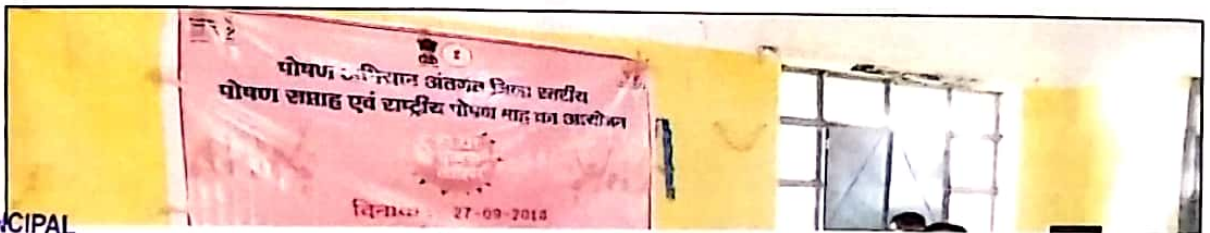 पोषण अभियान अंतर्गत जिला स्तरीय
पोषण सप्ताह एवं राष्ट्रीय पोषण माह का आयोजन
दिनांक : 27-09-2018
CIPAL